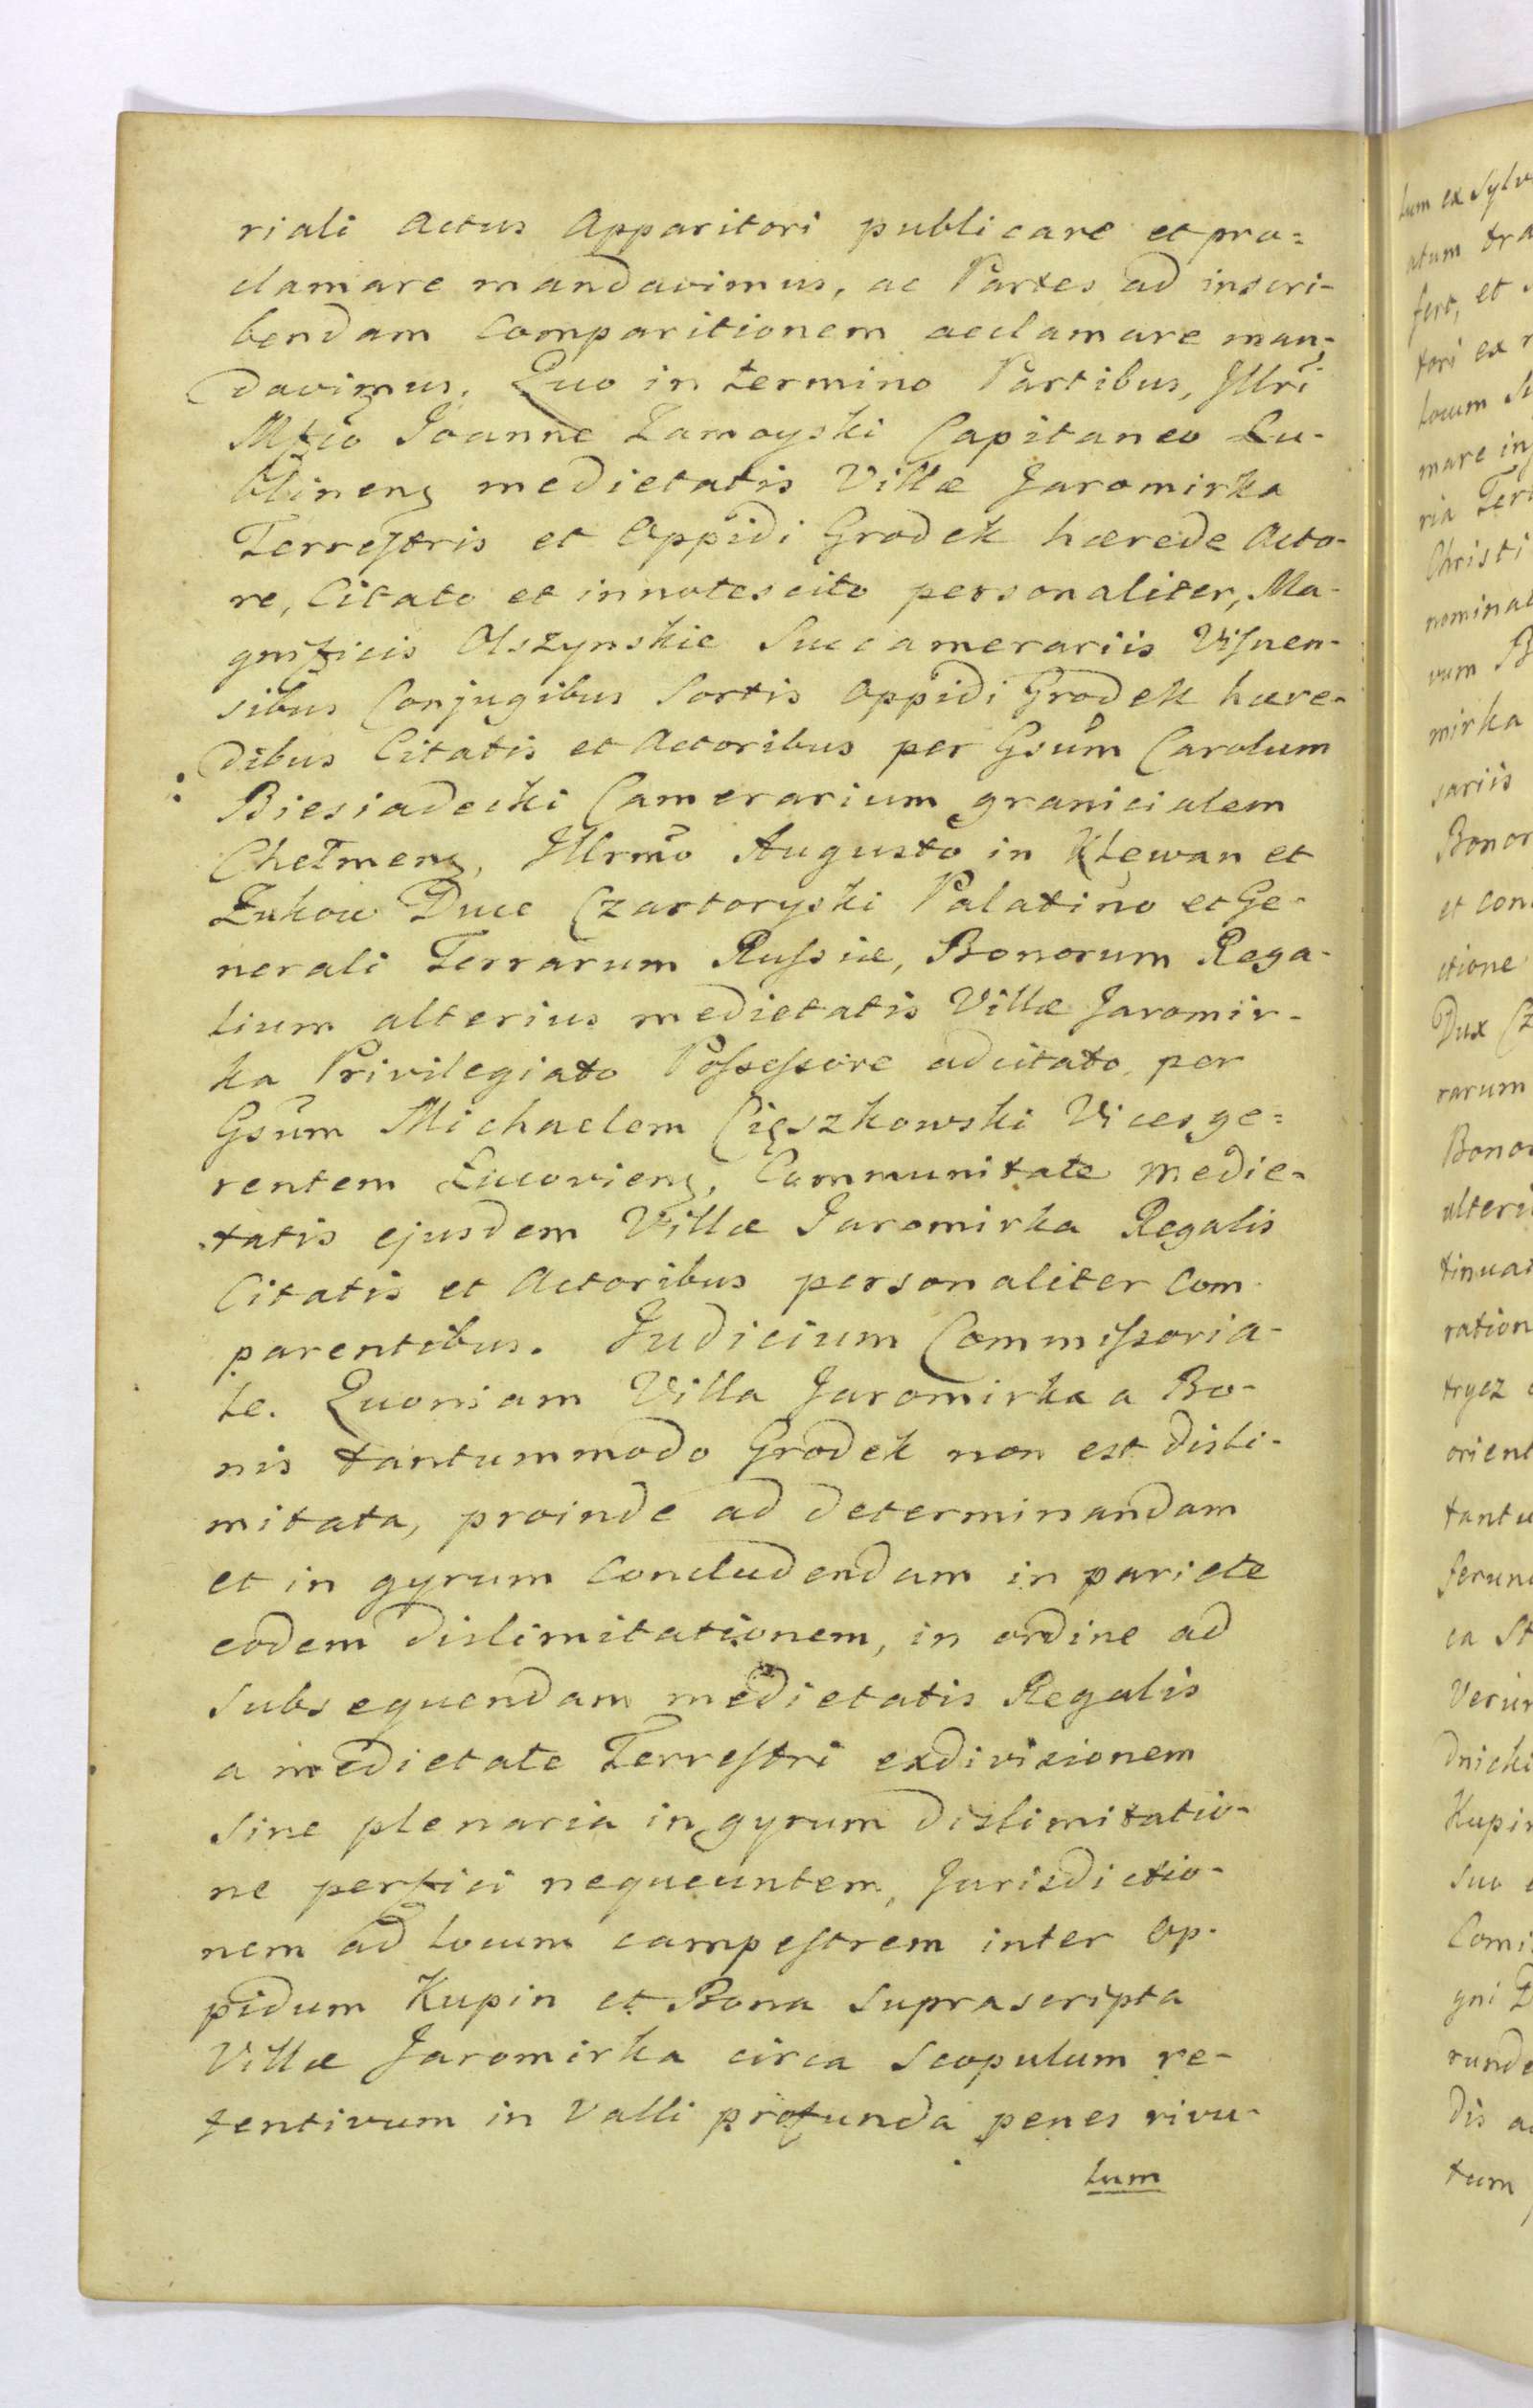 riali Actus Apparitori publicare et pro=
clamare mandavimus, ac Partes ad inscri-
bendam Comparitionem acclamare man-
davimus. Quo in termino Partibus, Illri
Mfico Joanne Zamoyski Capitaneo Lu-
blinens medietatis Villæ Jaromirka
Terrestris et Oppidi Grodek hærede Acto-
re, Citato et innotescito personaliter, Ma-
gnificis Olszynskie Succamerariis Visnen-
sibus Conjugibus Sortis Oppidi Grodek hære-
dibus Citatis et Actoribus per Gsum Carolum
Biesiadecki Camerarium granicialem
Chełmens, Illrmo Augusto in Klewan et
Zukow Duce Czartoryski Palatino et Ge-
nerali Terrarum Russiæ, Bonorum Rega-
lium alterius medietatis Villæ Jaromir-
ka Privilegiato Possessore adcitato, per
Gsum Michaelem Cięszkowski Vicesge=
rentem Lucoviens, Communitate medie-
tatis ejusdem Villæ Jaromirka Regalis
Citatis et Actoribus personaliter Com-
parentibus. Judicium Commissoria-
le. Quoniam Villa Jaromirka a Bo-
nis tantummodo Grodek non est disli-
mitata, proinde ad determinandam
et in gyrum Concludendam in pariete
eodem dislimitationem, in ordine ad
subsequendam medietatis Regalis
a medietate Terrestri exdivisionem
sine plenaria in gyrum dislimitatio-
ne perfici nequeuntem, Jurisdictio-
nem ad locum campestrem inter Op-
pidum Kupin et Bona suprascripta
Villæ Jaromirka circa Scopulum re-
tentivum in Valli profunda penes rivu-
lum
lum ex Sylv
atum tra
fert, et
tori ex r
locum Su
mare in
ria Terr
Christi
nominat
rum B
mirka
sariis
Bonor
et con
itione
Dux Cz
rarum
Bonor
alteri
tinuat
ration
trycz
orient
tantu
ferun
ca St
Verum
dnicki
Kupin
suo
Comi
gni D
runde
dis a
tum